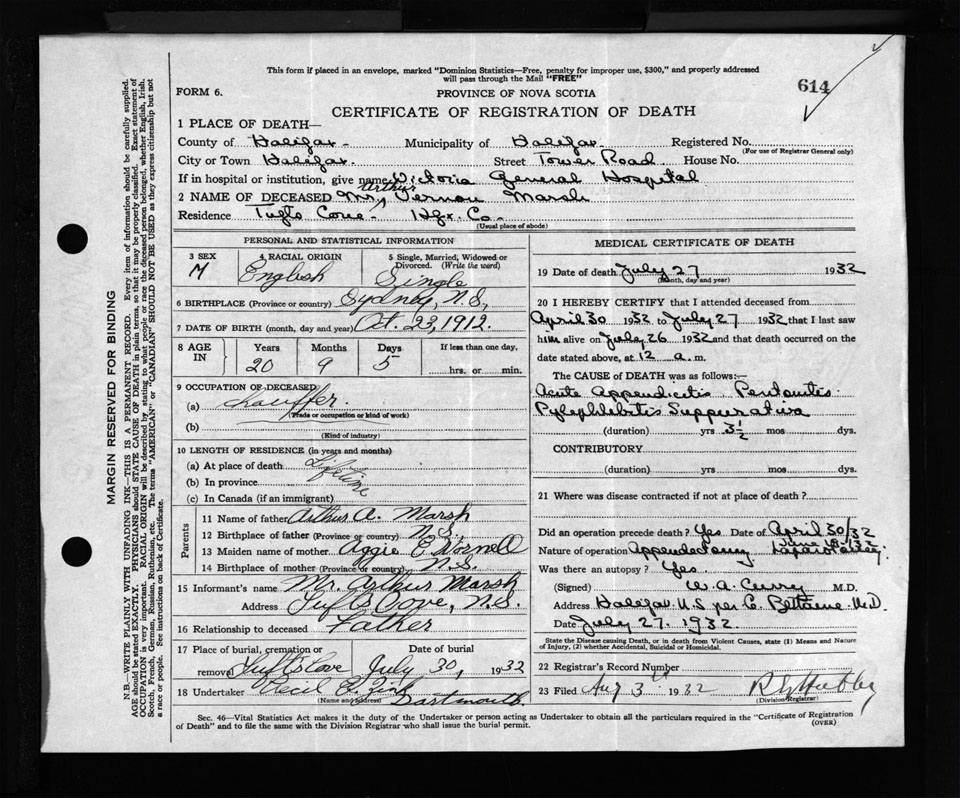 This form if placed in an envelope, marked "Dominion Statistics—Free, penalty for improper use, $300," and properly addressed
will pass through the Mail "FREE"
614
FORM 6.
PROVINCE OF NOVA SCOTIA
CERTIFICATE OF REGISTRATION OF DEATH
1 PLACE OF DEATH—
County of Halifax Municipality of Halifax Registered No.
(For use of Registrar General only)
City or Town Halifax Street Tower Road House No.
If in hospital or institution, give name Victoria General Hospital
Arthur
2 NAME OF DECEASED Mr. Vernon Marsh
Residence Tufts Cove - Hfx. Co.
(Usual place of abode)
PERSONAL AND STATISTICAL INFORMATION
3 SEX 4 RACIAL ORIGIN 5 Single, Married, Widowed or
Divorced. (Write the word)
M English Single
6 BIRTHPLACE (Province or country) Sydney, N.S.,
7 DATE OF BIRTH (month, day and year) Oct. 23, 1912.
8 AGE IN Years Months Days If less than one day.
20 9 5 hrs. or min.
9 OCCUPATION OF DECEASED
(a) Chauffer.
(Trade or occupation or kind of work)
(b)
(Kind of industry)
10 LENGTH OF RESIDENCE (in years and months)
(a) At place of death Lifetime
(b) In province
(c) In Canada (if an immigrant)
Parents
11 Name of father Arthur A. Marsh
12 Birthplace of father (Province or country) N.S.
13 Maiden name of mother Aggie E.
14 Birthplace of mother (Province or country) N.S.
15 Informant's name Mr. Arthur Marsh
Address Tufts Cove, N.S.
16 Relationship to deceased Father
17 Place of burial, cremation or Date of burial
removal Tufts Cove July 30, 1932
18 Undertaker Cecil
(Name and address) Dartmouth
MEDICAL CERTIFICATE OF DEATH
19 Date of death July 27 1932
(Month, day and year)
20 I HEREBY CERTIFY that I attended deceased from
April 30 1932 to July 27 1932 that I last saw
him alive on July 26 1932 and that death occurred on the
date stated above, at 12 a. m.
The CAUSE OF DEATH was as follows:—
Acute Appendicitis Peritonitis
Pylephlebitis Suppurativa
(duration) yrs 3½ mos dys.
CONTRIBUTORY
(duration) yrs. mos. dys.
21 Where was disease contracted if not at place of death?
Did an operation precede death? Yes Date of April 30/32
Nature of operation Appendectomy Laparotomy
Was there an autopsy? Yes
(Signed) W. A. Curry M.D.
Address Halifax N.S per M.D.
Date July 27. 1932.
State the Disease causing Death, or in death from Violent Causes, state (1) Means and Nature
of Injury, (2) whether Accidental, Suicidal or Homicidal.
22 Registrar's Record Number
23 Filed Aug 3 1932
(Division Registrar)
Sec. 46—Vital Statistics Act makes it the duty of the Undertaker or person acting as Undertaker to obtain all the particulars required in the "Certificate of Registration
of Death" and to file the same with the Division Registrar who shall issue the burial permit.
(OVER)
MARGIN RESERVED FOR BINDING
N.B.—WRITE PLAINLY WITH UNFADING INK—THIS IS A PERMANENT RECORD. Every item of information should be carefully supplied.
AGE should be stated EXACTLY. PHYSICIANS should STATE CAUSE OF DEATH in plain terms, so that it may be properly classified. Exact statement of
OCCUPATION is very important. RACIAL ORIGIN will be described by stating to what people or race the deceased person belonged, whether English, Irish,
Scotch, French, German, Russian, Ruthenian, etc. The terms "AMERICAN" or "CANADIAN" SHOULD NOT BE USED as they express citizenship but not
a race or people. See instructions on back of Certificate.